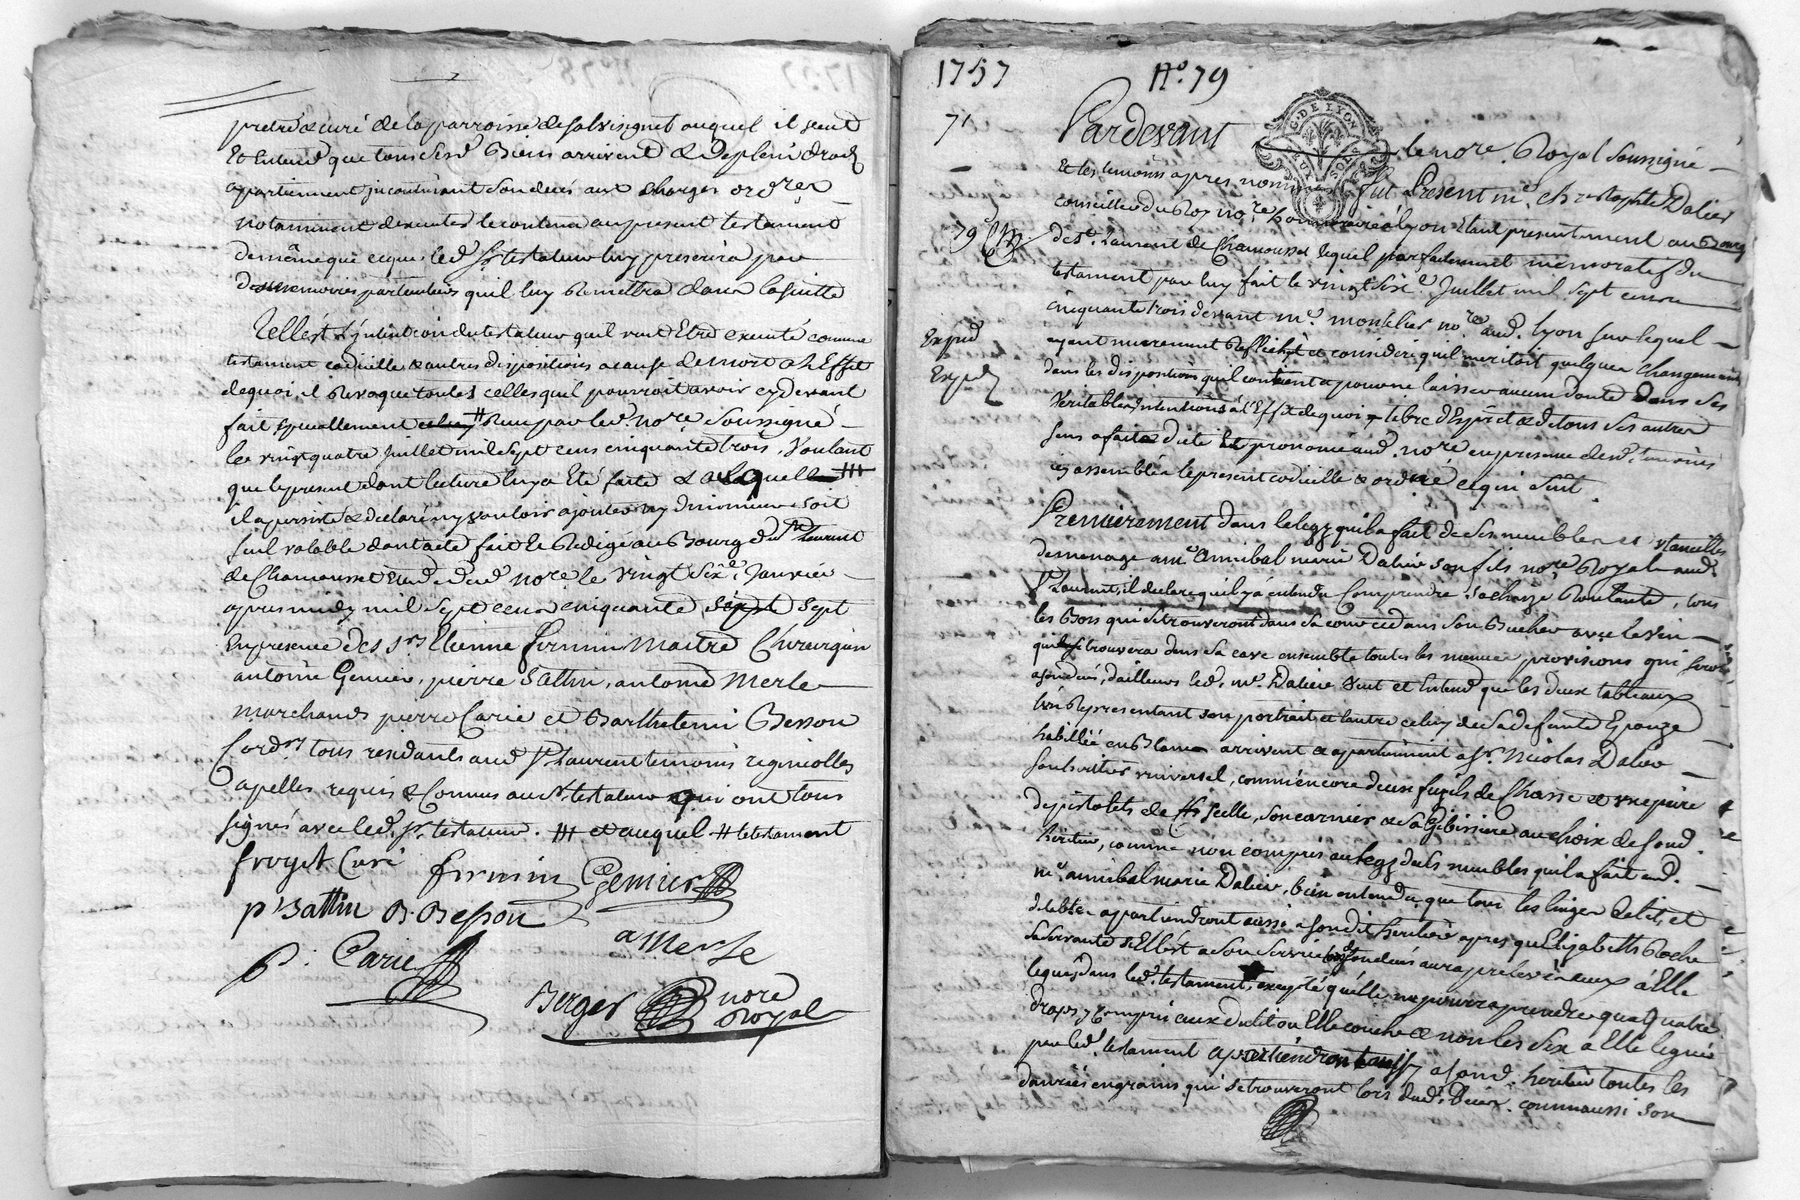 pretre & curé de la parroisse de Salvisignet auquel il veut
et entend que tous sesd. Biens arrivent & de plein droit
apartiennent incontinant son decés aux charges ord.res
notamment d'executer le contenu au present testament
de même que ce que led. Sr. testateur luy prescrira par
des memoires particuliers qu'il luy Remettra dans la suitte
Tell'est l'intention du testateur qu'il veut Etre executé comme
testament codicille & autres dispositions a cause de mort a L'Effet
de quoi, il Revoque toutes celles qu'il pourroit avoir cy devant
fait speciallement celuy # Reçu par led. no.re Soussigné
le vingt quatre Juillet mil Sept cens cinquante trois, Voulant
que le present dont lecture luy a Eté faite & a laquelle #
il a persisté & declaré n'y vouloir ajouter ny diminuer soit
seul valable dont acte fait & Redigé au Bourg de St. Laurent
de Chamousset Etude dud. no.re le vingt six.e Janvier
apres midy mil sept cens cinquante sept sept
En presence des Srs Etienne firmin Maitre Chirurgien
antoine Gemier, pierre Battin, antoine Merle
marchands pierre Carie et Barthelemi Besson
Cord.rs tous residants aud. St. Laurent temoins reginicolles
apellés requis & Connus au Sr. testateur qui ont tous
signés avec led. Sr. testateur. # et auquel # le testament
froget Curé firmin Gemier
p. Battin B. Besson
a Merle
P. Carie
Berger nore
Royal
1757 N.o 79
7.
Pardevant le nore. Royal soussigné
G. DE LYON
Et les temoins apres nommés fut Present m.e Christophe Dalier
conseiller du Roy no.re honoraire a Lyon Etant presentement au Bourg
79
de St. Laurent de Chamousset lequel parfaitement memoratif du
testament par luy fait le vingt six.e Juillet mil sept cens
cinquante trois devant m.e montelier no.re aud. Lyon sur lequel
Exped
ayant murement Reflechit et consideré qu'il meritoit quelques changemens
Exped
dans les dispositions qu'il contient a pouvoir laisser aucun doute Dans ses
Veritables Intentions a l'Effet de quoi, libre d'Esprit & de tous ses autres
sens a fait & dicté et prononcé aud. nore en presence desd. temoins
icy assemblés le present codicille & ordre ce qui suit.
Premierement dans le legz qu'il a fait de ses meubles et utancilles
de menage a me Annibal marie Dalier son fils nore Royal aud.
St. Laurent, il declare qu'il y a entendu Comprendre sa chaize Roulante, tous
les Bois qui se trouveront dans sa cour & dans son Bucher avec le vin
qui se trouvera dans sa cave ensemble toutes les menues provisions qui seront
a son decés, d'ailleurs led. me. Dalier Veut et Entend que les deux tableaux
l'un Representant son portrait et l'autre celuy de sa defunte Epouze
habillée en Blanc arrivent & apartiennent a Sr. Nicolas Dalier
son heritier universel, comm'encore deux fuzils de Chasse et une paire
de pistolets de selle, son carnier & sa Gibissiere au choix de sond.
heritier, comme non compris au legz des meubles qu'il a fait aud.
me. annibal marie Dalier, bien entendu que tous les linges de lit et
de table apartiendront aussi a son dit heritier apres qu'Elizabeth Roche
sa servante si Ell'est a son service lors de son deces aura prelevé ceux a Elle
legués dans led. testament, excepté qu'elle ne pourra prendre que quatre
draps y compris ceux du lit ou Elle couche & non les six a Elle legués
par led. testament apartiendront aussy a sond. heritier toutes les
danrées en grains qui se trouveront lors dud. Deces. comm'aussi son